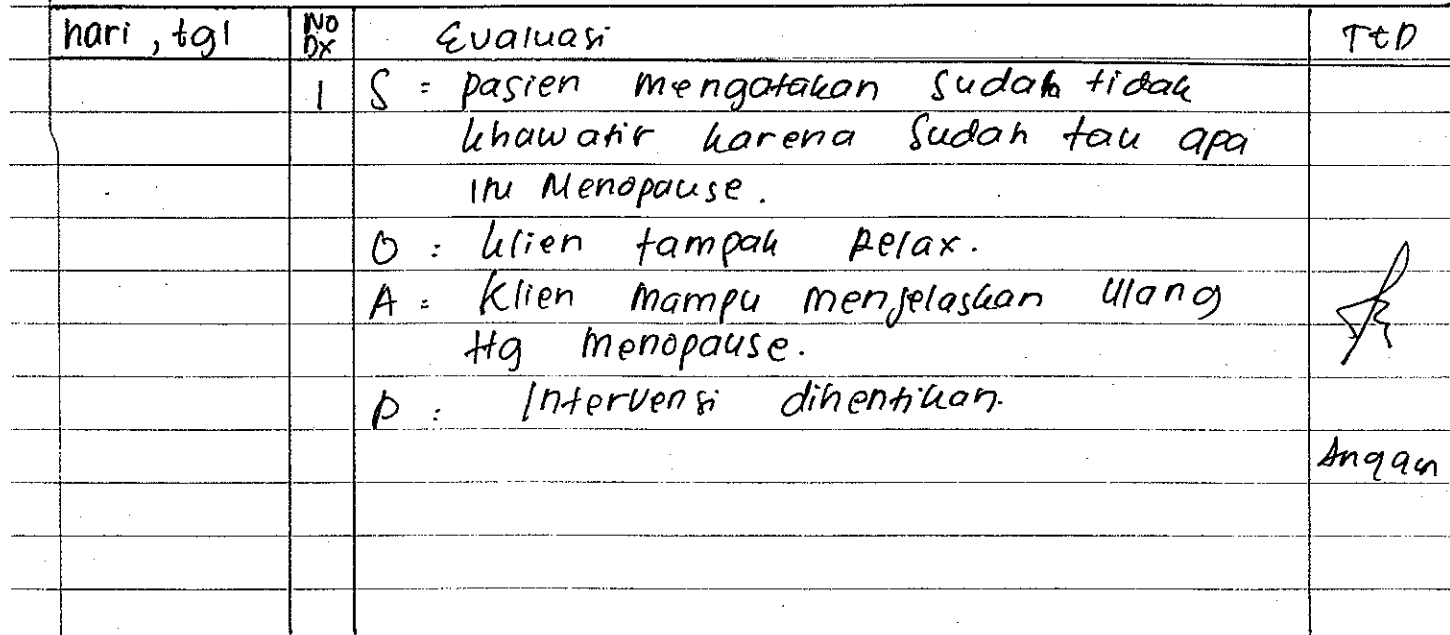 hari, tgl No Dx Evaluasi TtD
1 S = pasien mengatakan sudah tidak
khawatir karena sudah tau apa
itu Menopause.
O : klien tampak Relax.
A = Klien mampu menjelaskan ulang
Hg menopause.
P : Intervensi dihentikan.